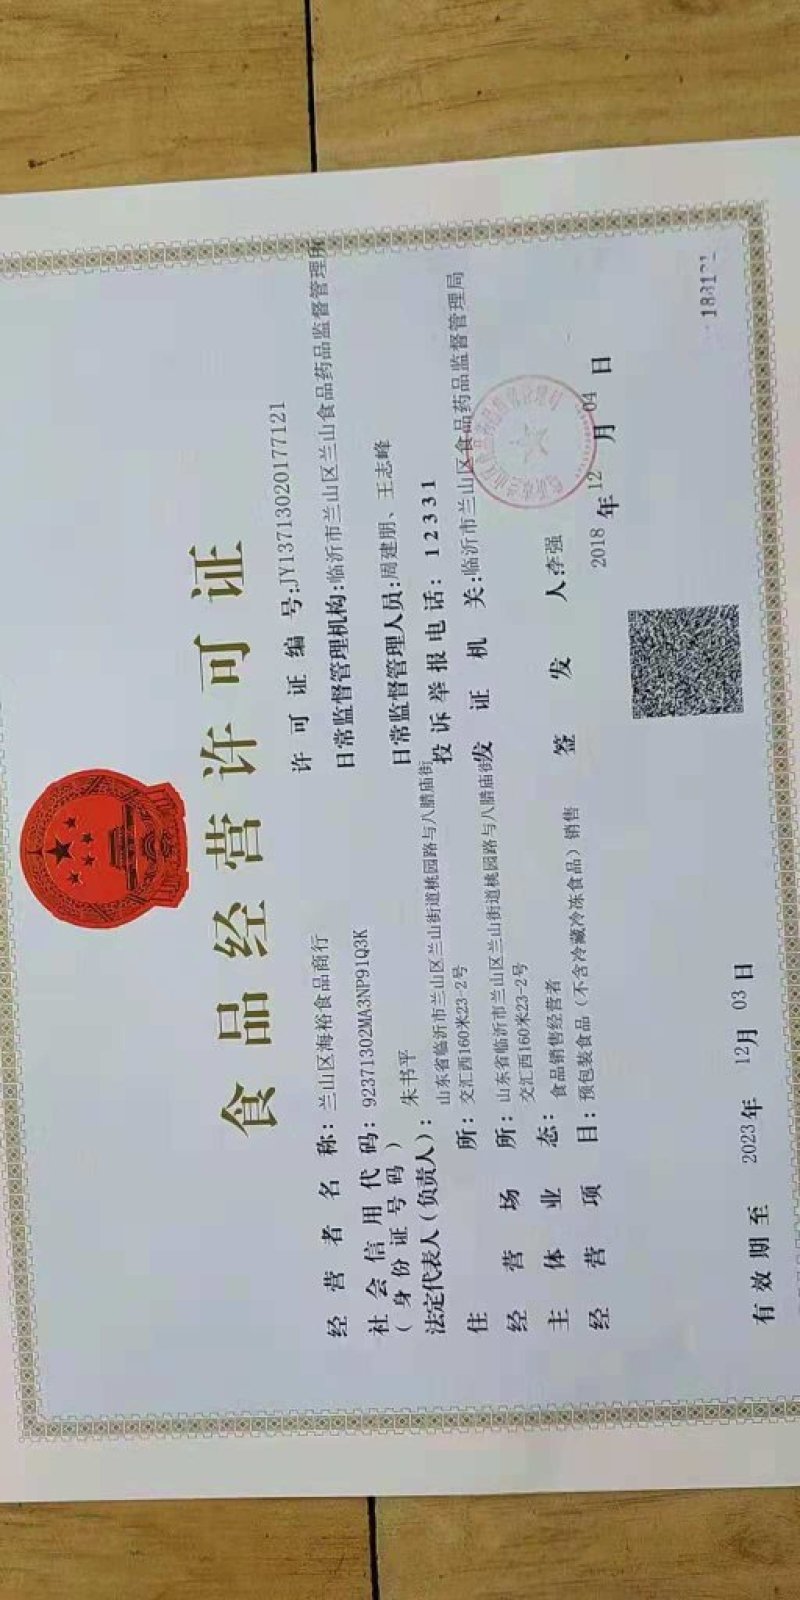 食品经营许可证
经营者名称：兰山区海裕食品商行
社会信用代码：92371302MA3NP91Q3K
（身份证号码）
法定代表人（负责人）：朱书平
住所：山东省临沂市兰山区兰山街道桃园路与八腊庙街
交汇西160米23-2号
经营场所：山东省临沂市兰山区兰山街道桃园路与八腊庙街
交汇西160米23-2号
主体业态：食品销售经营者
经营项目：预包装食品（不含冷藏冷冻食品）销售
有效期至 2023年 12月 03日
许可证编号：JY13713020177121
日常监督管理机构：临沂市兰山区兰山食品药品监督管理所
日常监督管理人员：周建朋、王志峰
投诉举报电话：12331
发证机关：临沂市兰山区食品药品监督管理局
签发人：李强
2018年12月04日